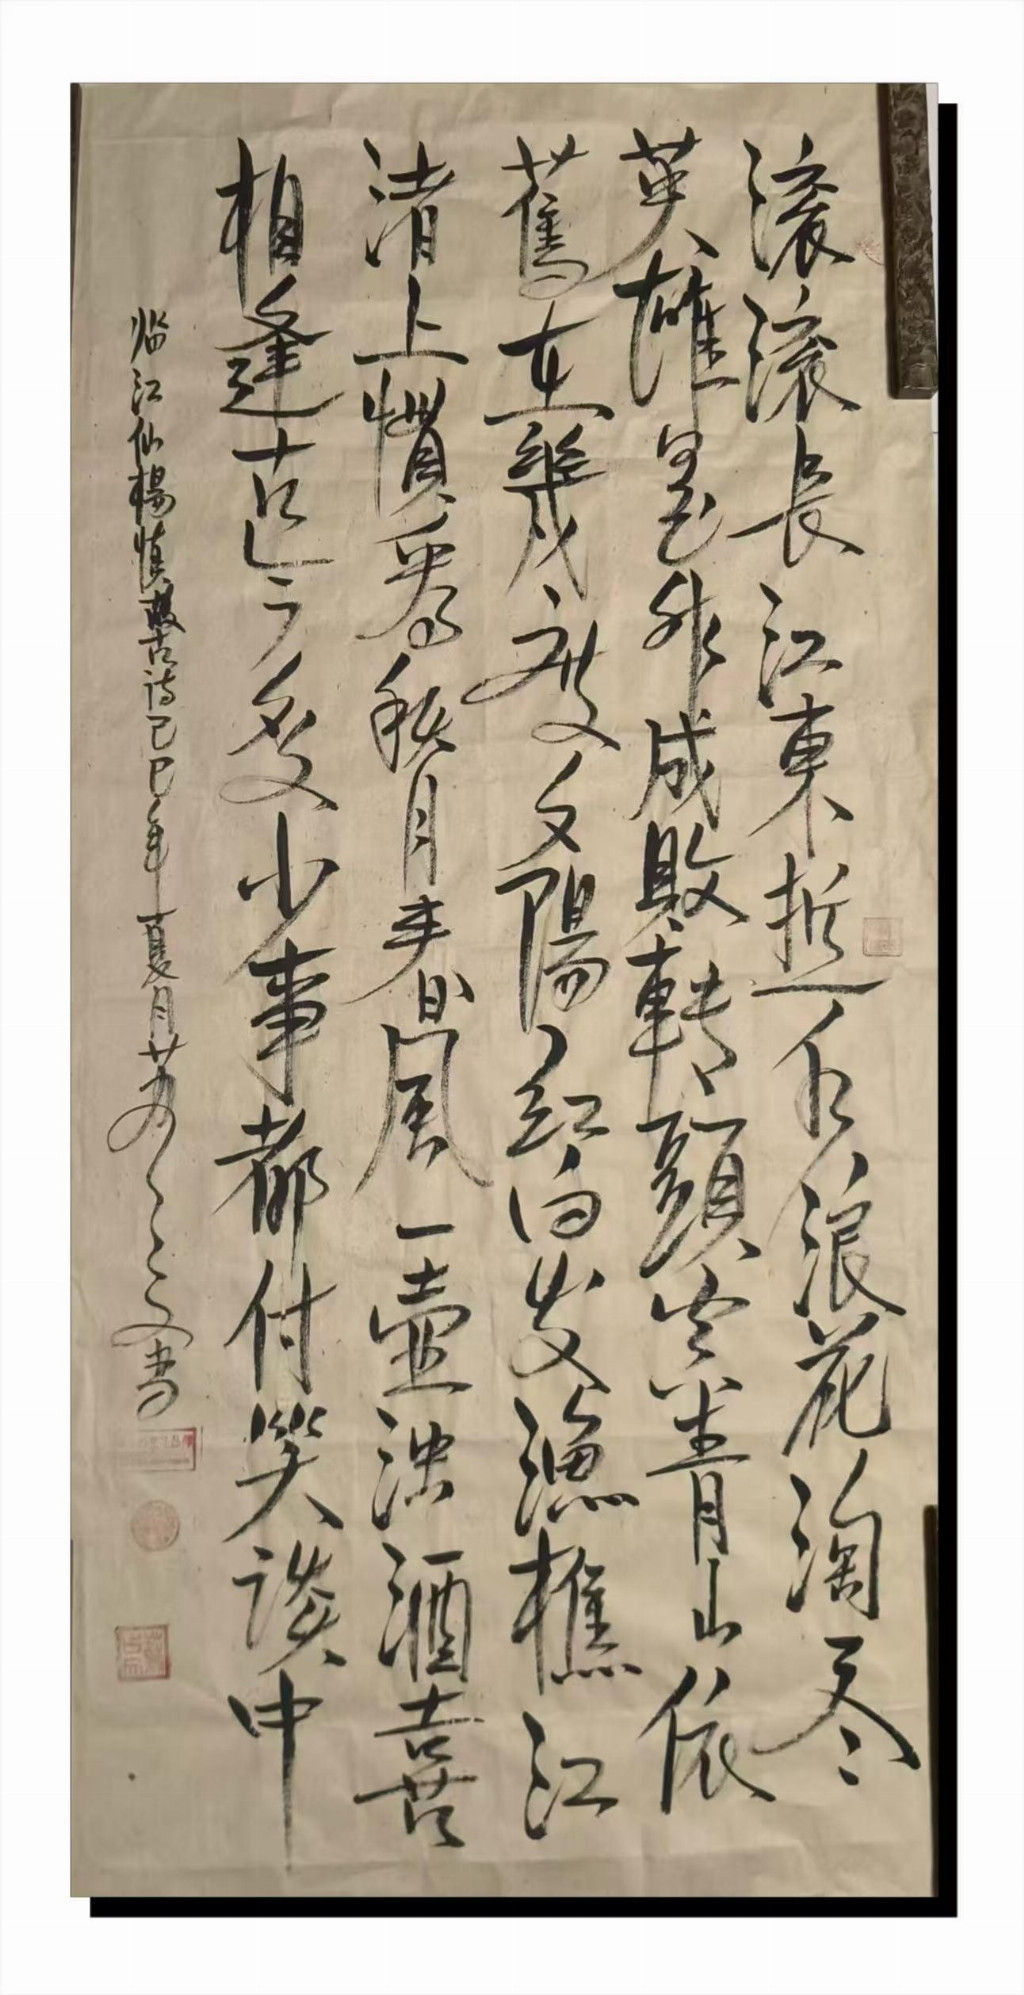 滚滚長江東逝水浪花淘尽
英雄是非成敗轉頭空青山依
舊在幾度夕陽紅白发漁樵江
渚上慣看秋月春風一壺浊酒喜
相逢古今多少事都付笑談中
临江仙楊慎懷古詩乙巳年夏月书